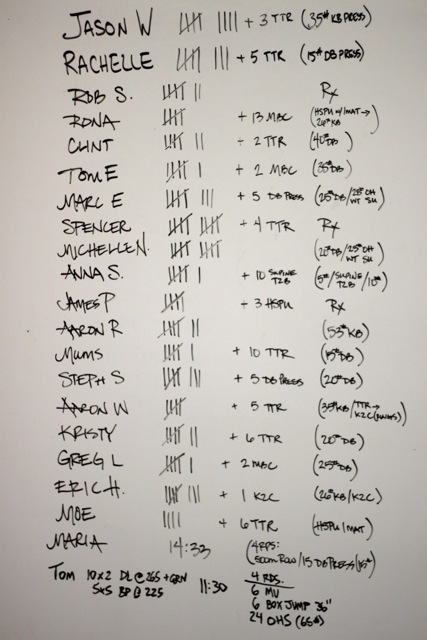 JASON W 𝍸 |||| + 3 TTR (35# KB PRESS)
RACHELLE 𝍸 |||| + 5 TTR (15# DB PRESS)
ROB S. 𝍸 || Rx
RDNA 𝍸 + 13 MBC (HSPU w/1MAT → 26# KB)
CLINT 𝍸 || + 2 TTR (40# DB)
TOM E 𝍸 | + 2 MBC (35# DB)
MARC E 𝍸 ||| + 5 DB PRESS (25# DB/25# OH WT SU)
SPENCER 𝍸 𝍸 + 4 TTR Rx
MICHELLE N. 𝍸 𝍸 (20# DB/25# OH WT SU)
ANNA S. 𝍸 | + 10 SUPINE T2B (5#/SUPINE T2B/10#)
JAMES P 𝍸 + 3 HSPU Rx
AARON R 𝍸 || (53# KB)
MUMS 𝍸 | + 10 TTR (15# DB)
STEPH S 𝍸 ||| + 5 DB PRESS (20# DB)
AARON W 𝍸 + 5 TTR (35# KB/TTR → K2C)
KRISTY 𝍸 || + 6 TTR (20# DB)
GREG L 𝍸 | + 2 MBC (25# DB)
ERIC H. 𝍸 ||| + 1 K2C (26# KB/K2C)
MOE |||| + 6 TTR (HSPU/1MAT)
MARIA 14:33 (4 RDS: 500m ROW/15 DB PRESS/15#)
TOM 10x2 DL @ 265 + GRN 11:30 4 RDS.
5x5 BP @ 225 6 MU
6 BOX JUMP 36"
24 OHS (65#)